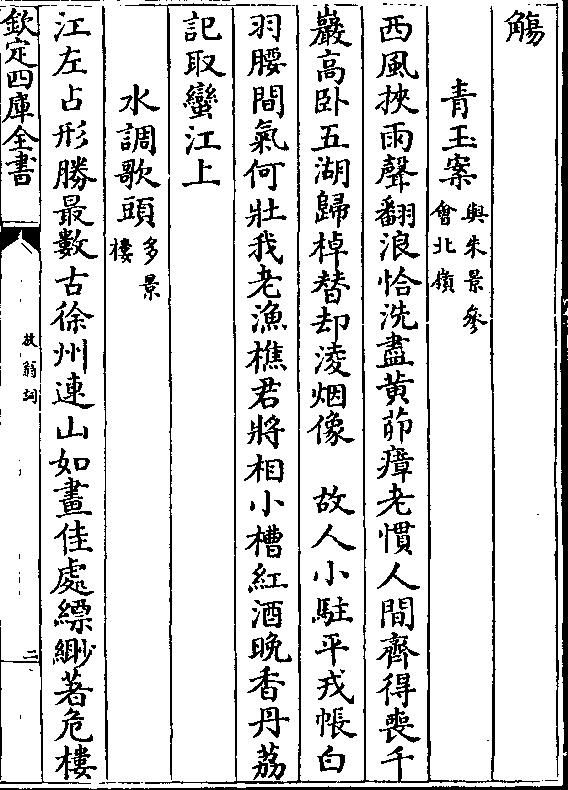 觴
青玉案與朱景參會北嶺
西風挾雨聲翻浪恰洗盡黄茆瘴老慣人間齊得喪千
巖高卧五湖歸棹替却淩烟像　故人小駐平戎帳白
羽腰間氣何壯我老漁樵君將相小槽紅酒晩香丹荔
記取蠻江上
水調歌頭多景樓
江左占形勝最數古徐州連山如畫佳處縹緲著危樓
欽定四庫全書
放翁詞
二